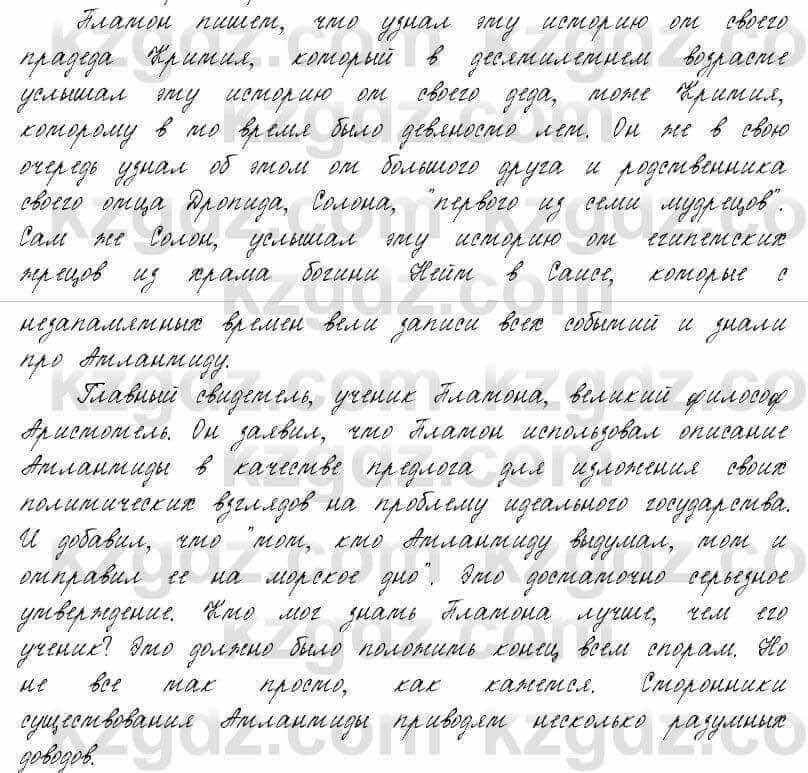 Платон пишет, что узнал эту историю от своего
прадеда Крития, который в десятилетнем возрасте
услышал эту историю от своего деда, тоже Крития,
которому в то время было девяносто лет. Он же в свою
очередь узнал об этом от большого друга и родственника
своего отца Дропида, Солона, "первого из семи мудрецов".
Сам же Солон, услышал эту историю от египетских
жрецов из храма богини Нейт в Саисе, которые с
незапамятных времен вели записи всех событий и знали
про Атлантиду.
Главный свидетель, ученик Платона, великий философ
Аристотель. Он заявил, что Платон использовал описание
Атлантиды в качестве предлога для изложения своих
политических взглядов на проблему идеального государства.
И добавил, что "тот, кто Атлантиду выдумал, тот и
отправил ее на морское дно". Это достаточно серьезное
утверждение. Кто мог знать Платона лучше, чем его
ученик? Это должно было положить конец всем спорам. Но
не все так просто, как кажется. Сторонники
существования Атлантиды приводят несколько разумных
доводов.
kzgdz.com